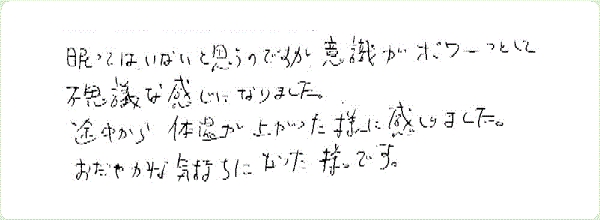 眠ってはいないと思うのですが意識がボワーっとして
不思議な感じになりました。
途中から体温が上がった様に感じました。
おだやかな気持ちになった様です。